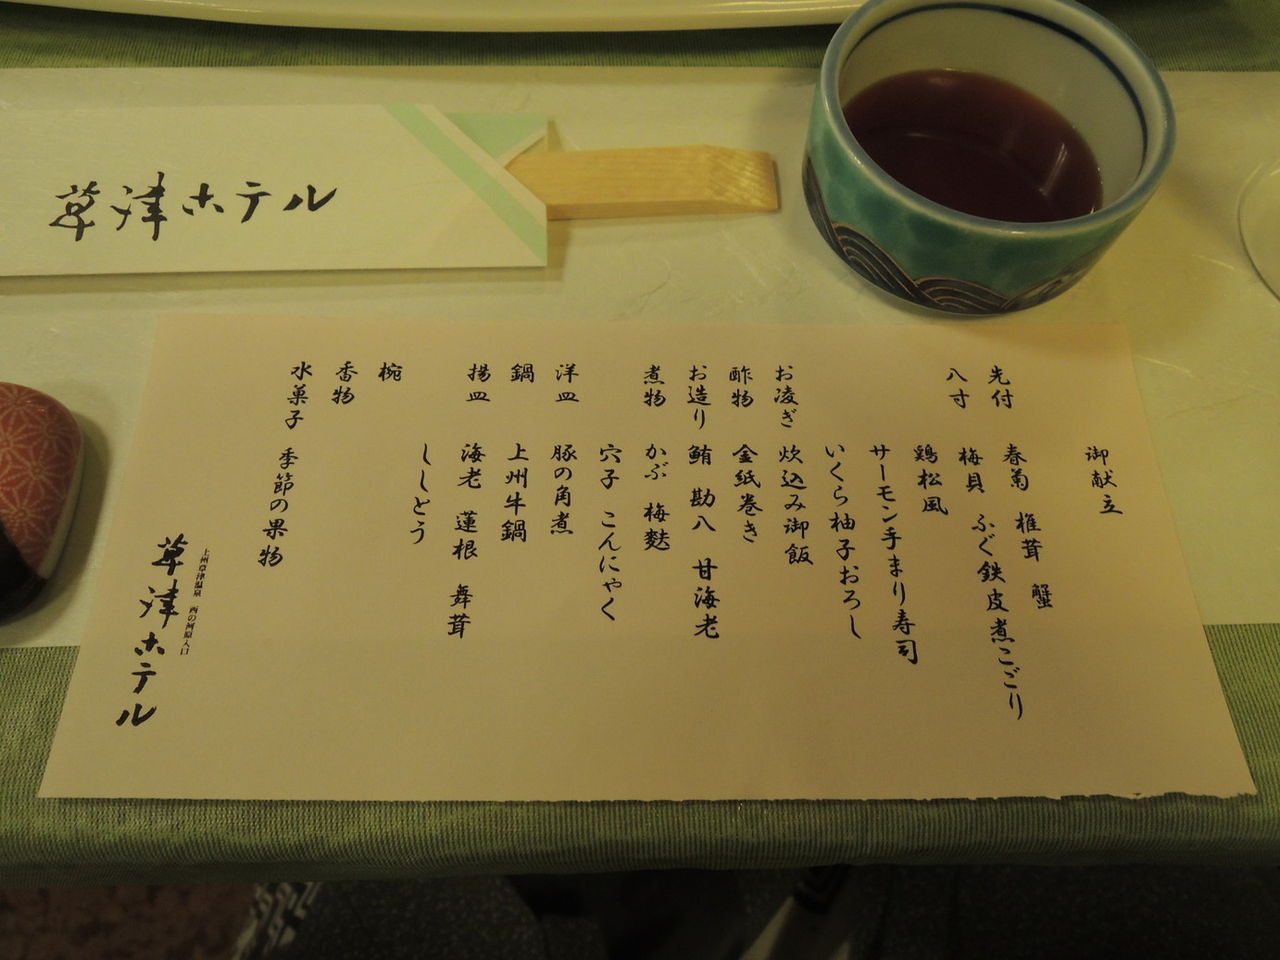 草津ホテル
御献立
先付 春菊 椎茸 蟹
八寸 梅貝 ふぐ鉄皮煮こごり
鶏松風
サーモン手まり寿司
いくら柚子おろし
お凌ぎ 炊込み御飯
酢物 金紙巻き
お造り 鮪 勘八 甘海老
煮物 かぶ 梅麩
穴子 こんにゃく
洋皿 豚の角煮
鍋 上州牛鍋
揚皿 海老 蓮根 舞茸
ししとう
椀
香物
水菓子 季節の果物
上州草津温泉 西の河原入口
草津ホテル